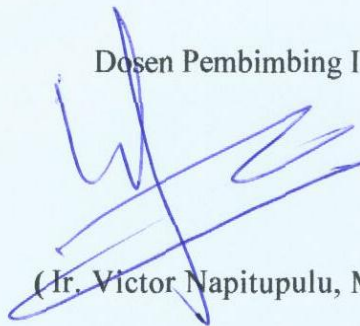 Dosen Pembimbing I
( Ir. Victor Napitupulu, M